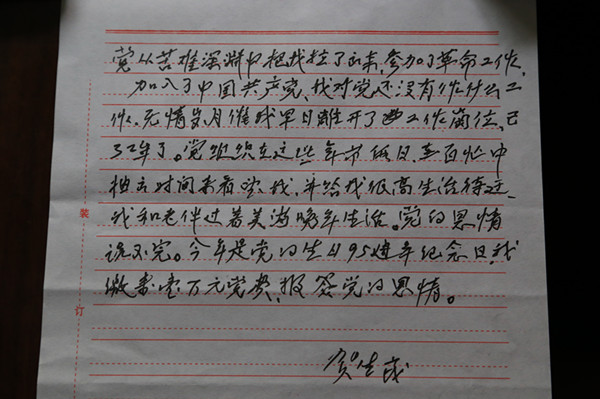 党从苦难深渊中把我拉了出来,参加了革命工作,
加入了中国共产党、我对党还没有作什么工
作.无情岁月催我早日离开了工作岗位,已
了。党组织在这些年节假日,在百忙中
抽出时间来看望我,并给我很高生活待遇、
我和老伴过着美满晚年生活。党的恩情
说不完。今年是党的生日95週年纪念日,我
缴壹万元党费,报答党的恩情。
贺生茂
装
订